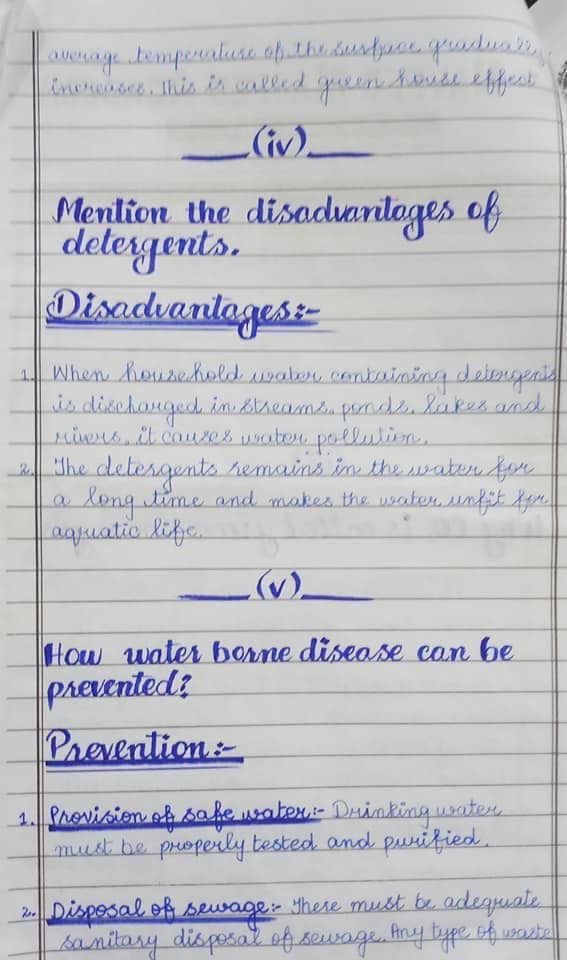 average temperature of the surface gradually
increases. This is called green house effect
(iv)
Mention the disadvantages of
detergents.
Disadvantages:-
1. When household water containing detergents
is discharged in streams, ponds, lakes and
rivers, it causes water pollution.
2. The detergents remains in the water for
a long time and makes the water unfit for
aquatic life.
(v)
How water borne disease can be
prevented?
Prevention:-
1. Provision of safe water:- Drinking water
must be properly tested and purified.
2. Disposal of sewage:- There must be adequate
sanitary disposal of sewage. Any type of waste